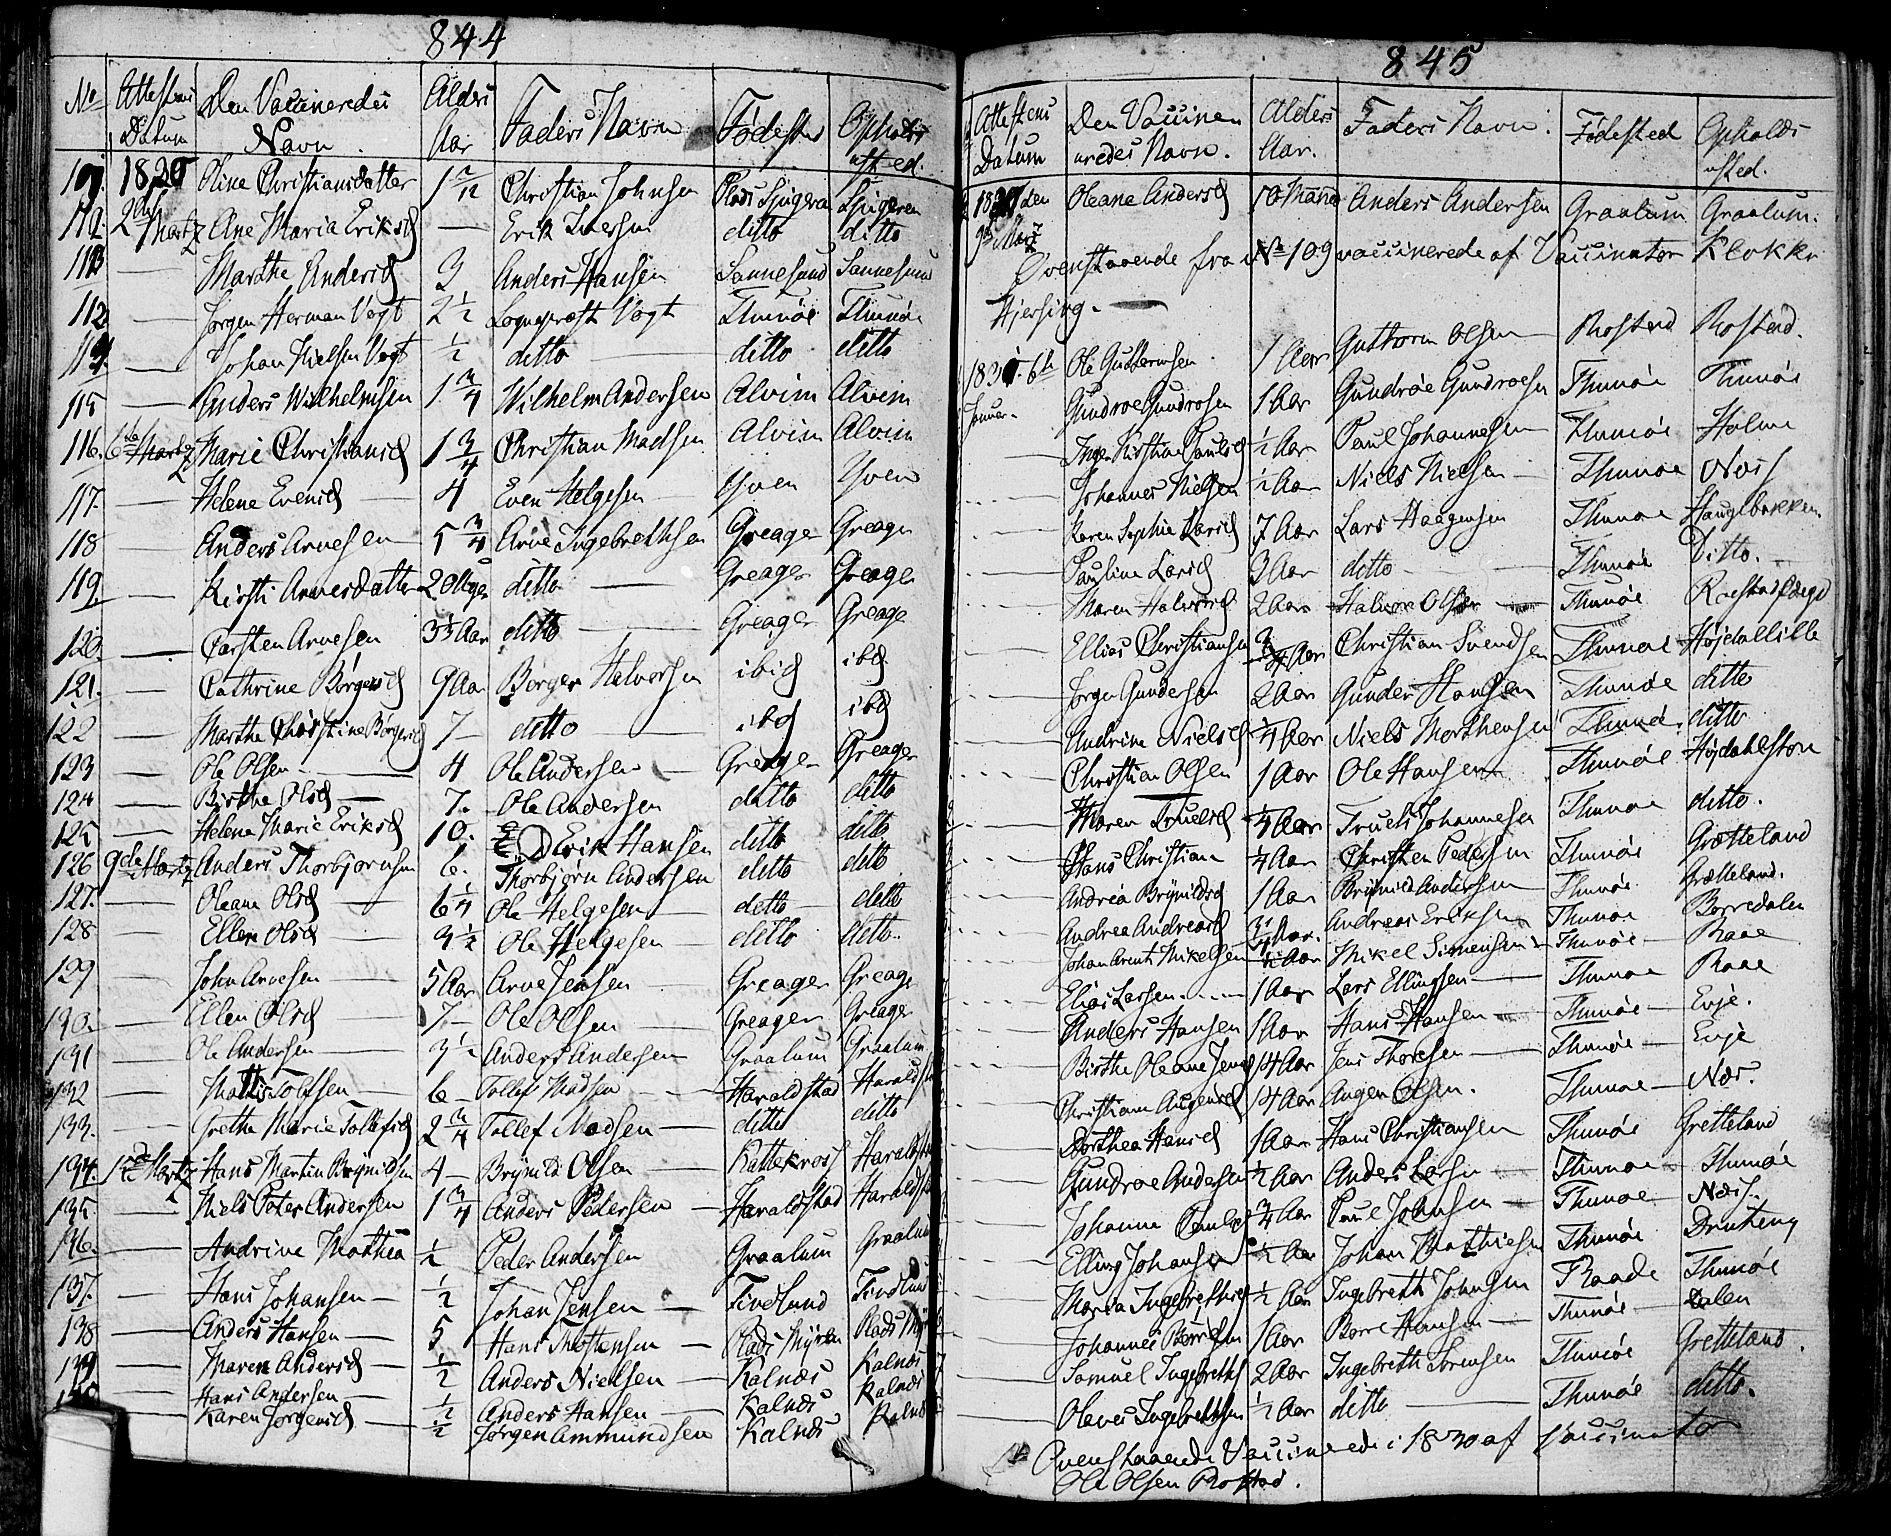 844
No Attestens Datum Den Vaccineredes Navn Alders Aar Faders Navn Fødested Opholdssted
1820 Oline Christiansdatter 1 2/12 Christian Johnsen Plads Spigeren Spigeren
2den Martz Ane Maria Eriksd — Erik Iversen ditto ditto
— Marthe Andersd 3 Anders Hansen Sannesund Sannesund
112 — Jørgen Herman Vogt 2 1/2 Sogneprest Vogt Thunøe Thunøe
— Johan Nielsen Vogt 1/2 ditto — ditto ditto
115 — Anders Wilhelmsen 1 3/4 Wilhelm Andersen Alvim Alvim
116. 6te Martz Marie Christiansd 1 3/4 Christian Madsen Alvim Alvim
117. — Helene Evensd — 4 Even Helgesen — Yven Yven
118 — Anders Arnesen 5 3/4 Arne Ingebrethsen Greager Greager
119. — Kirsti Arnesdatter 20 Uger ditto — Greager Greager
120. — Carsten Arnesen 3 1/2 Aar ditto — Greager Greager
121. — Cathrine Børgersd 9 Aar Børger Halvorsen ibid ibd
122 — Marthe Christine Børgersd 7 — ditto ibd ibd
123 — Ole Olsen — 4 Ole Andersen — Greager Greager
124 — Birthe Olsd — 7. Ole Andersen ditto ditto
125 — Helene Marie Eriksd 10. Erik Hansen ditto ditto
126 9de Martz Anders Thorbjørnsen 6. Thorbjørn Andersen ditto ditto
127. — Oleane Olsd — 6 1/4 Ole Helgesen — ditto — ditto
128 — Ellen Olsd — 3 1/2 Ole Helgesen — ditto ditto.
129 — John Arnesen — 5 Aar Arne Jensen Greager Greager
130. — Ellen Olsd — 7 — Ole Olsen — Greager Greager
131 — Ole Andersen — 3 1/2 Anders Andersen Graalum Graalum
132 — Mattis Tolfsen — 6 — Tollef Madsen — Haraldstad Haraldst
133. — Grethe Marie Tollefsd 2 3/4 Tollef Madsen — ditto ditto
134. Martz Hans Martin Brynildsen 4 — Brynild Olsen — Kattekros Haraldsta
135 — Niels Peter Andersen 1 3/4 Anders Pedersen — Haraldstad Haraldst
136. — Andrine Mathea 1/2 Peder Andersen Graalum Graalum
137. — Hans Johansen — 1/2 Johan Jensen — Tindlund Tindlund
138 — Anders Hansen — 5 Hans Mortensen — Plads Myren Plads Myr
139 — Maren Andersd — 1/2 Anders Nielsen — Kalnæs Kalnæs
— Hans Andersen — 1/2 Anders Hansen — Kalnæs Kalnæs
— Karen Jørgensd — 1/2 Jørgen Ammundsen Kalnæs Kalnæs
845
Attestens Datum Den Vaccineredes Navn. Alders Aar. Faders Navn. Fødested Opholdssted.
den 9de Martz Oleane Andersd 10 Maan Anders Andersen Graalum Graalum.
Ovenstaaende fra No 109 vaccinerede af Vaccinatør Klokker
Hjersing. —
6te Januar. Ole Guttormsen 1 Aar Guttorm Olsen — Rostad Rostad.
Gundroe Gundrosen 1 Aar Gundrøe Gundroesen Thunøe Thunøe
— Inger Kirstine Paulsd 1/2 Aar Paul Johannesen Thunøe Holme
— Johannes Nielsen 1/2 Aar Niels Nielsen — Thunøe Næs
— Karen Sophie Larsd 7 Aar Lars Haagensen Thunøe Hauglbakken
— Pauline Larsd 3 Aar ditto — Thunøe Ditto. —
— Maren Halvorsd 2 Aar Halvor Olsen — Thunøe
— Ellias Christiansen 3/4 Aar Christian Svendsen Thunøe Højdallille
— Jørgen Gundersen 2 Aar Gunder Hansen Thunøe ditto
— Andrine Nielsd 1/4 Aar Niels Morthensen Thunøe. ditto
— Christian Olsen 1 Aar Ole Hansen Thunøe Højdahlston
— Maren Truelsd 1/4 Aar Truels Johannesen Thunøe ditto.
— Hans Christian 1/4 Aar Christen Pedersen Thunøe Grætteland
— Andrea Brynildsd 1 Aar Brynild Andersen Thunøe Grætteland.
— Andrea Andreasd 3/4 Aar. Andreas Eriksen Thunøe Borredalen
— Johan Arent Mikelsen 1/2 Aar Mikel Simensen — Thunøe — Raae
— Elias Larsen — 1 Aar Lars Ellingsen — Thunøe Raae
— Anders Hansen 1 Aar Hans Hansen — Thunøe — Evje.
— Birthe Oleane Jensd 14 Aar Jens Thoresen — Thunøe — Evje
— Christiane Augensd 14 Aar Augen Olsen. Thunøe — Næs.
— Dorthea Hansd 1 Aar Hans Christiansen Thunøe Gretteland
— Gundroe Andersen 1/2 Aar Anders Larsen — Thunøe — Thunøe
— Johanne Paulsd 3/4 Aar Paul Johnsen — Thunøe — Næs.
— Elling Johansen 1/2 Aar Johan Mathiesen Thunøe Drukeng
— Maria Ingebrethsd 1/2 Aar Ingebreth Johnsen Raade Thunøe
— Johannes Børresen 1 Aar Børre Hansen — Thunøe — Dalen
— Samuel Ingebreths 2 Aar Ingebreth Sørensen Thunøe Gretteland.
— Olaves Ingebrethsen 1/2 Aar ditto — Thunøe ditto.
Ovenstaaende Vaccinerede i 1830 af Vaccinatør
Ole Olsen Rostad.